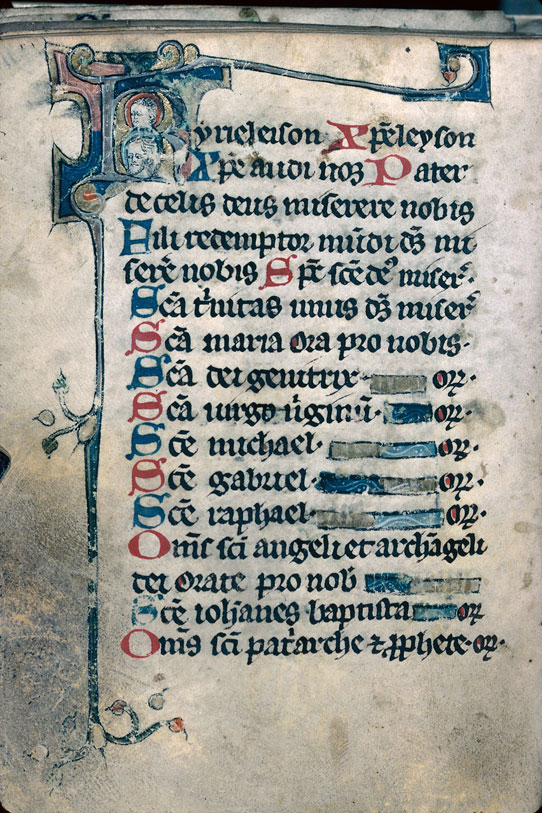 Kyrieleison Xp̄eleyson
Xp̄e audi noꝫ Pater
de celis deus miserere nobis
Fili redemptor mūdi dꝫ mi
serē nobis Sp̄c sc̄e deꝰ miser̄.
Sc̄a tⁱnitas unus dꝫ miser̄
Sc̄a maria ora pro nobis.
Sc̄a dei genitrix oꝝ.
Sc̄a uirgo ūginū. oꝝ.
Sc̄e michael. oꝝ.
Sc̄e gabriel. oꝝ.
Sc̄e raphael. oꝝ.
Om̄s sc̄i angeli et archāgeli
dei orate pro nob̄
Sc̄e iohanes baptista oꝝ
Om̄s sc̄i patⁱarche ⁊ ꝓphete. oꝝ.